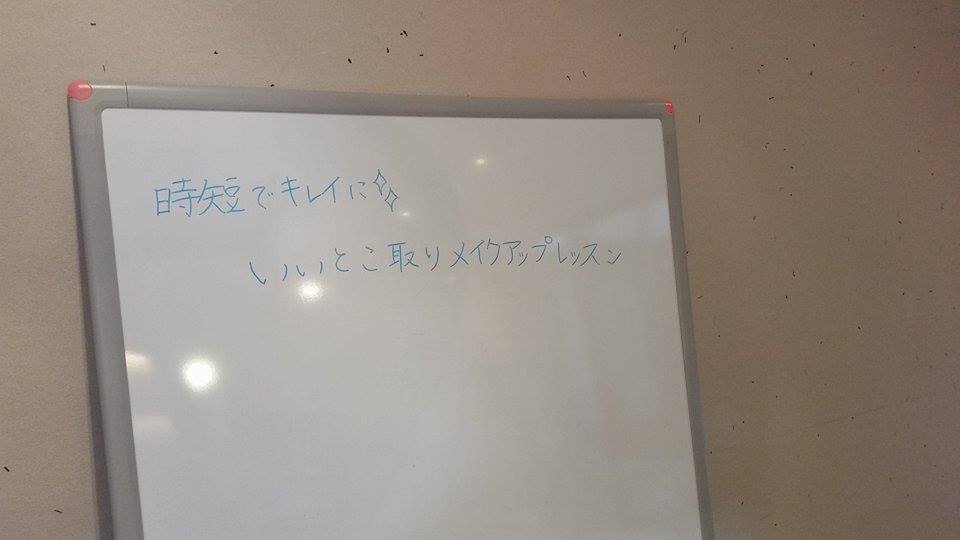 時短でキレイに✨
いいとこ取りメイクアップレッスン